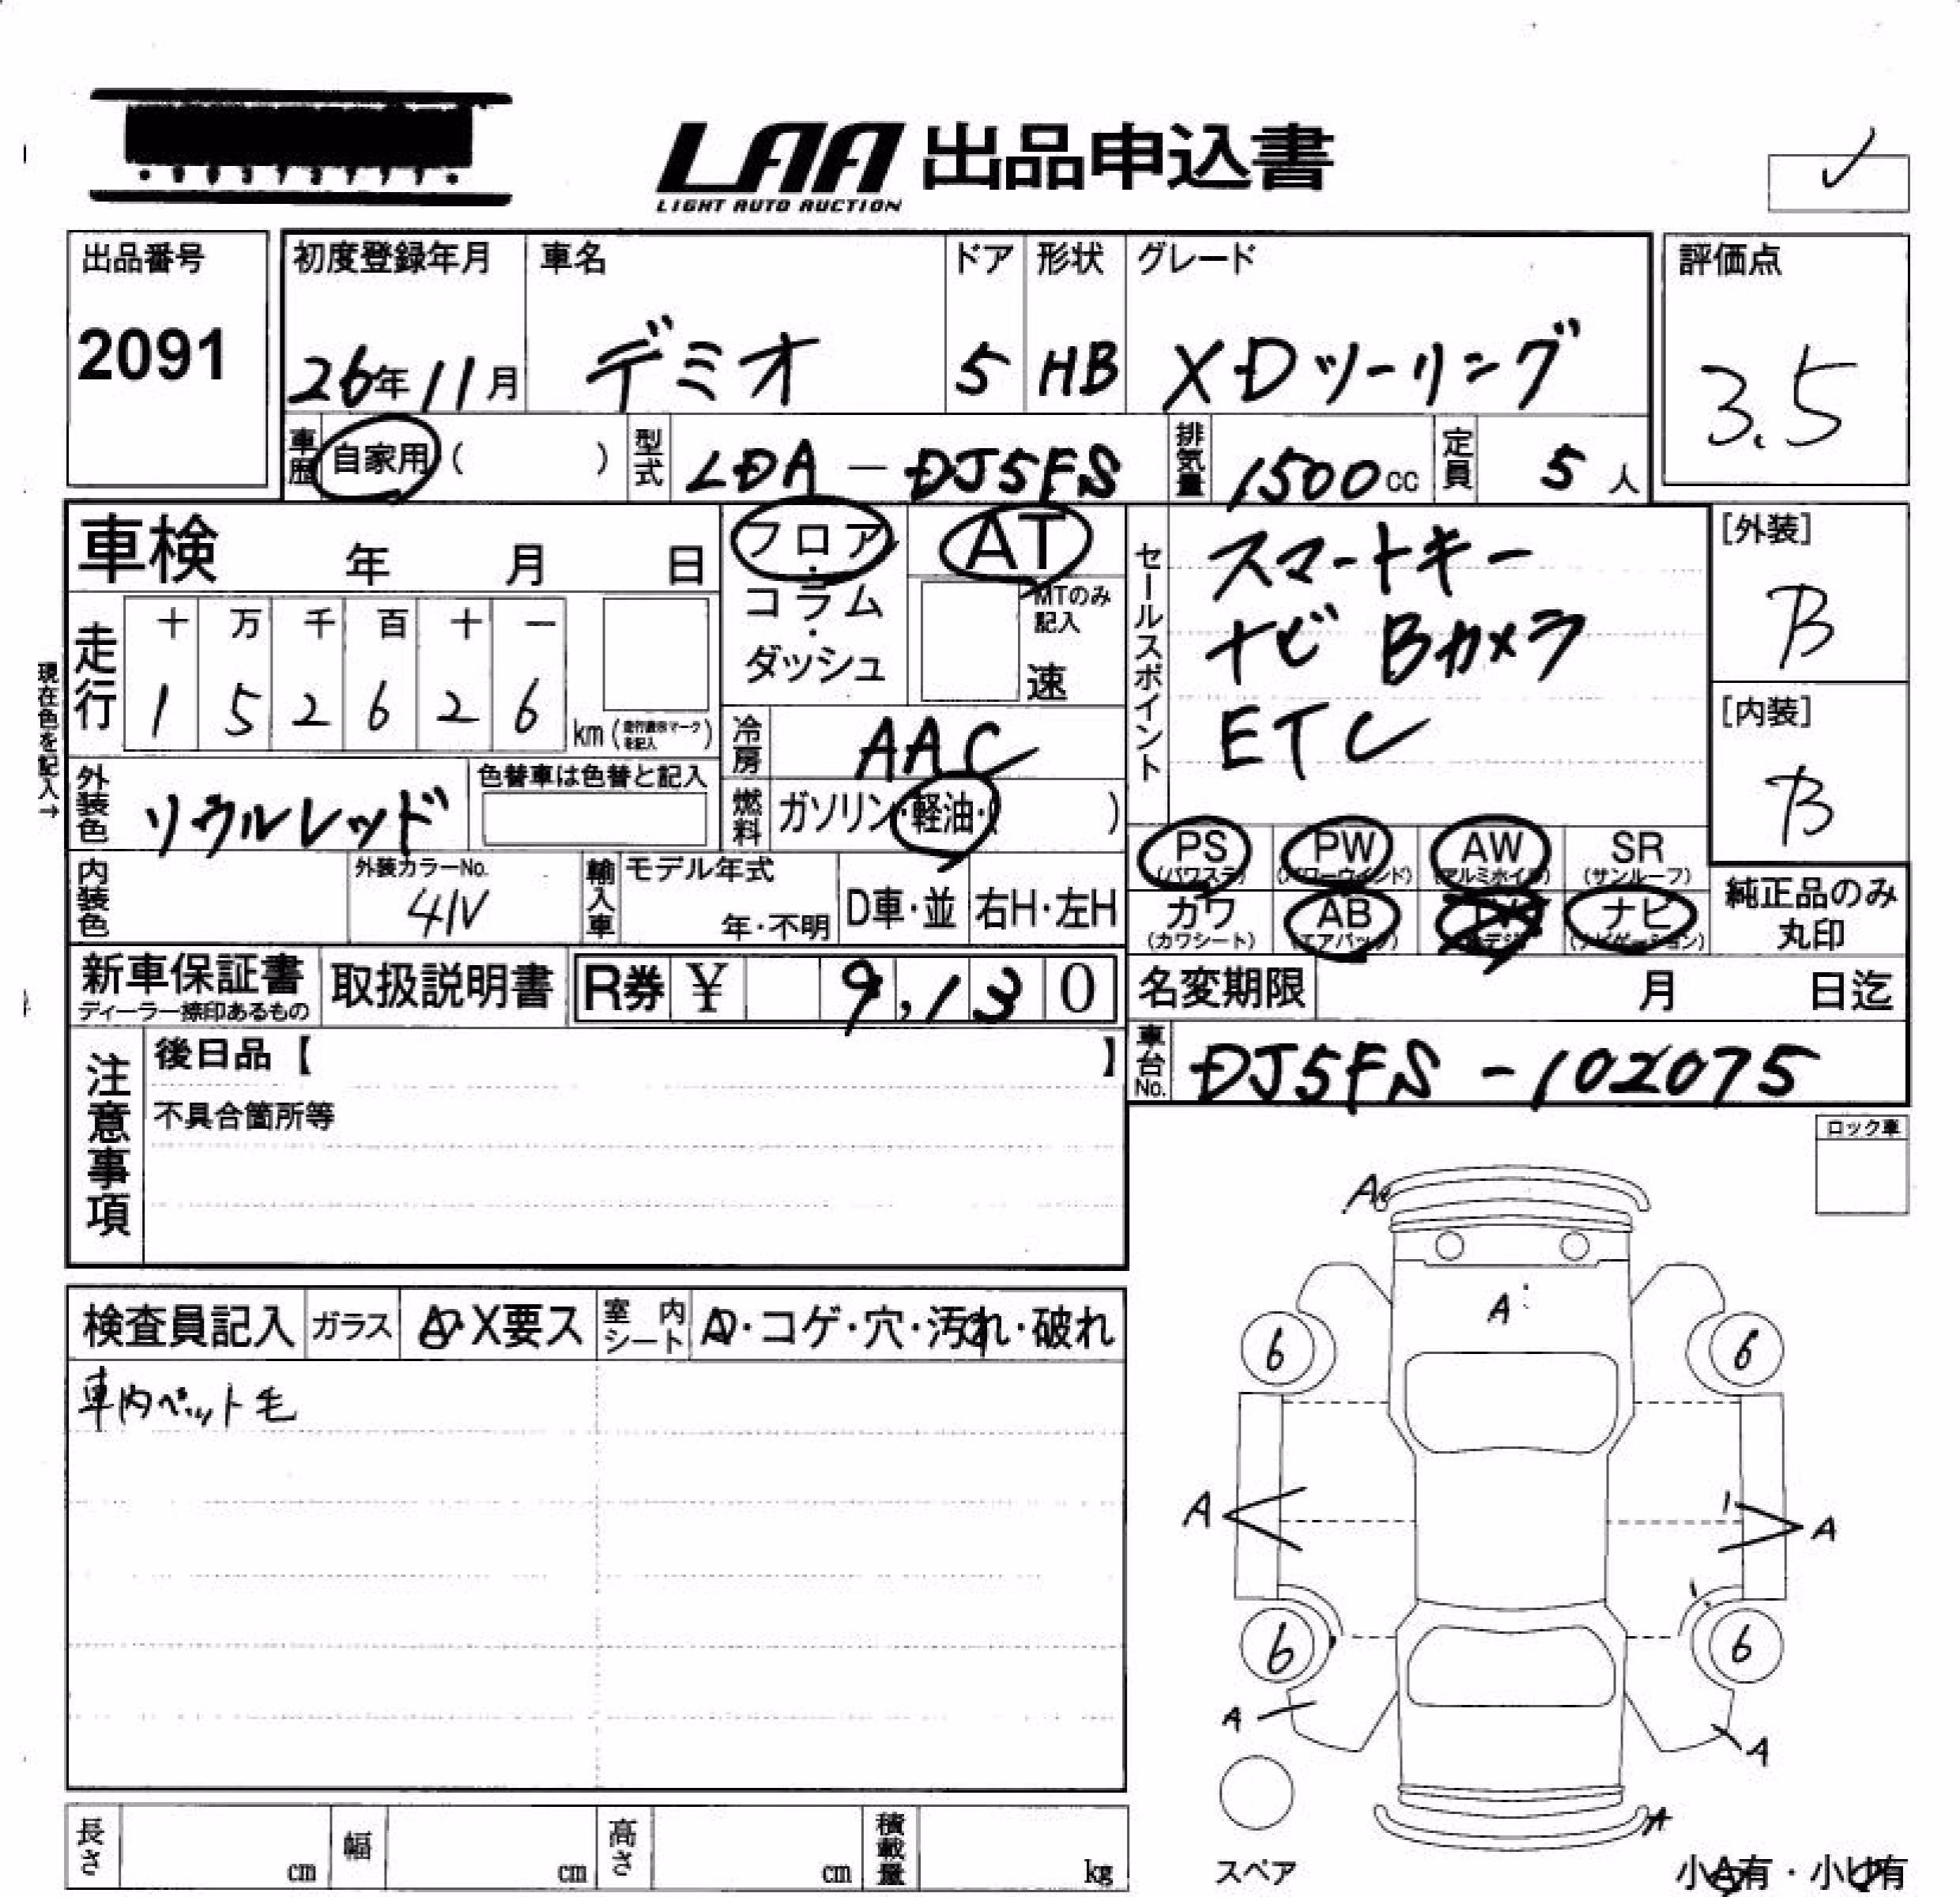 LAA 出品申込書
LIGHT AUTO AUCTION
出品番号
2091
初度登録年月 車名 ドア 形状 グレード
26年11月 デミオ 5 HB XDツーリング
評価点
3.5
車歴 自家用( ) 型式 LDA-DJ5FS 排気量 1500cc 定員 5人
車検 年 月 日
フロア・コラム・ダッシュ
AT
MTのみ記入
速
走行
十 万 千 百 十 一
1 5 2 6 2 6 km
現在色を記入→
冷房 AAC
燃料 ガソリン・軽油・( )
外装色 ソウルレッド
色替車は色替と記入
内装色
外装カラーNo.
41V
輸入車 モデル年式 年・不明 D車・並 右H・左H
セールスポイント
スマートキー
ナビ Bカメラ
ETC
[外装]
B
[内装]
B
PS PW AW SR
(パワステ) (パワーウインド) (アルミホイル) (サンルーフ)
カワ AB ナビ
(カワシート) (エアバック) (ナビゲーション)
純正品のみ
丸印
新車保証書
ディーラー捺印あるもの
取扱説明書
R券 ¥ 9,130
名変期限 月 日迄
車台No. DJ5FS-102075
注意事項
後日品【 】
不具合箇所等
ロック車
検査員記入 ガラス A・X要ス 室内シート A・コゲ・穴・汚れ・破れ
車内ペット毛
A
A
6 6
A A
6 6
A A
A
スペア
小A有・小U有
長さ cm 幅 cm 高さ cm 積載量 kg